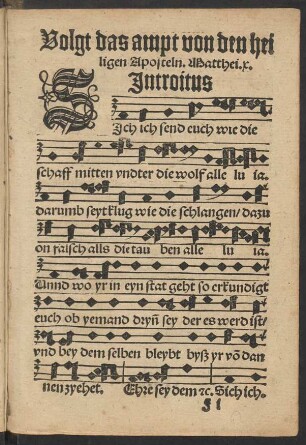 Volgt das ampt von den hei
ligen Aposteln. Matthei.x.
Introitus
SIch ich send euch wie die
schaff mitten vndter die wolf alle lu ia.
darumb seyt klug wie die schlangen/ dazu
on falsch alls die tau ben alle lu ia.
Unnd wo yr in eyn stat geht so erkündigt
euch ob yemand dryñ sey der es werd ist/
vnd bey dem selben bleybt byß yr võ dan
nen zyehet. Ehre sey dem ꝛc. Sich ich.